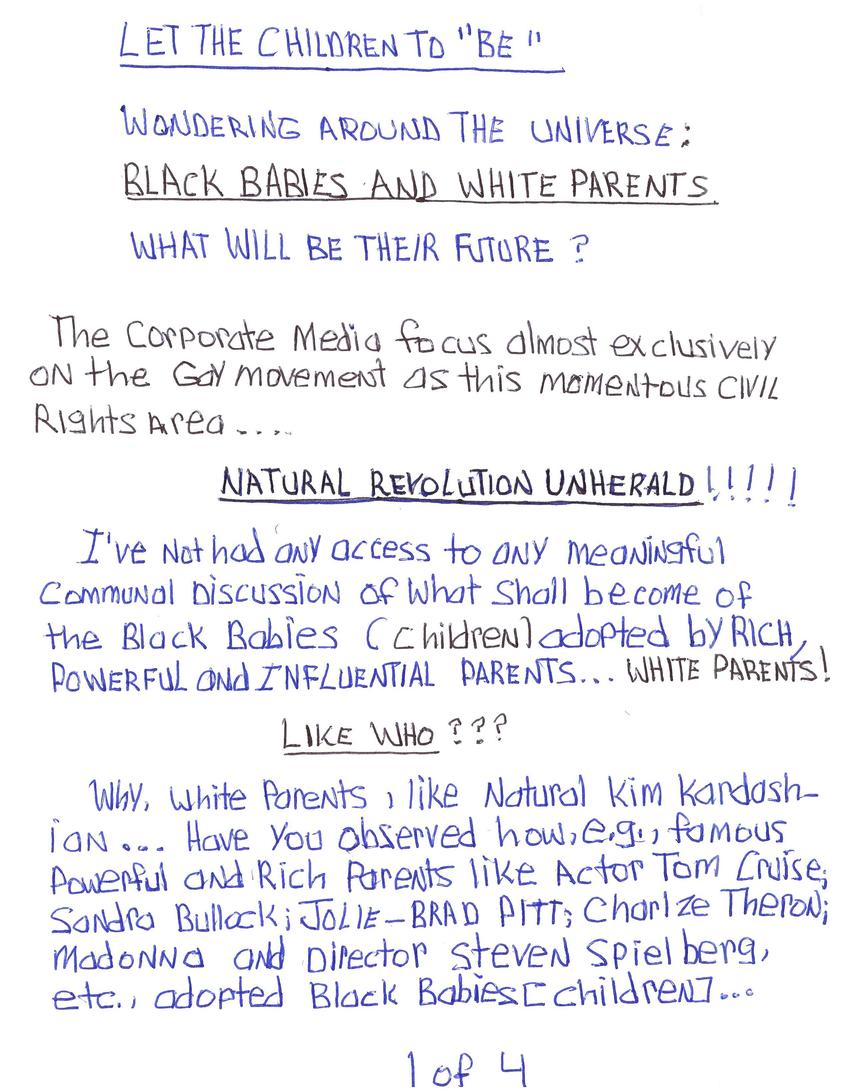 LET THE CHILDREN TO "BE"
WONDERING AROUND THE UNIVERSE:
BLACK BABIES AND WHITE PARENTS
WHAT WILL BE THEIR FUTURE?
The Corporate Media focus almost exclusively
ON the Gay movement as this momentous CIVIL
Rights Area....
NATURAL REVOLUTION UNHERALD!!!!!
I've Not had any access to any meaningful
Communal Discussion of what shall become of
the Black Babies [children] adopted by RICH,
POWERFUL and INFLUENTIAL PARENTS... WHITE PARENTS!
LIKE WHO???
Why, white Parents, like Natural Kim Kardash-
ian... Have you observed how, e.g., famous
Powerful and Rich Parents like Actor Tom Cruise;
Sandra Bullock; JOLIE-BRAD PITT; Charlze Theron;
Madonna and Director Steven Spielberg,
etc., adopted Black Babies [children]...
1 of 4